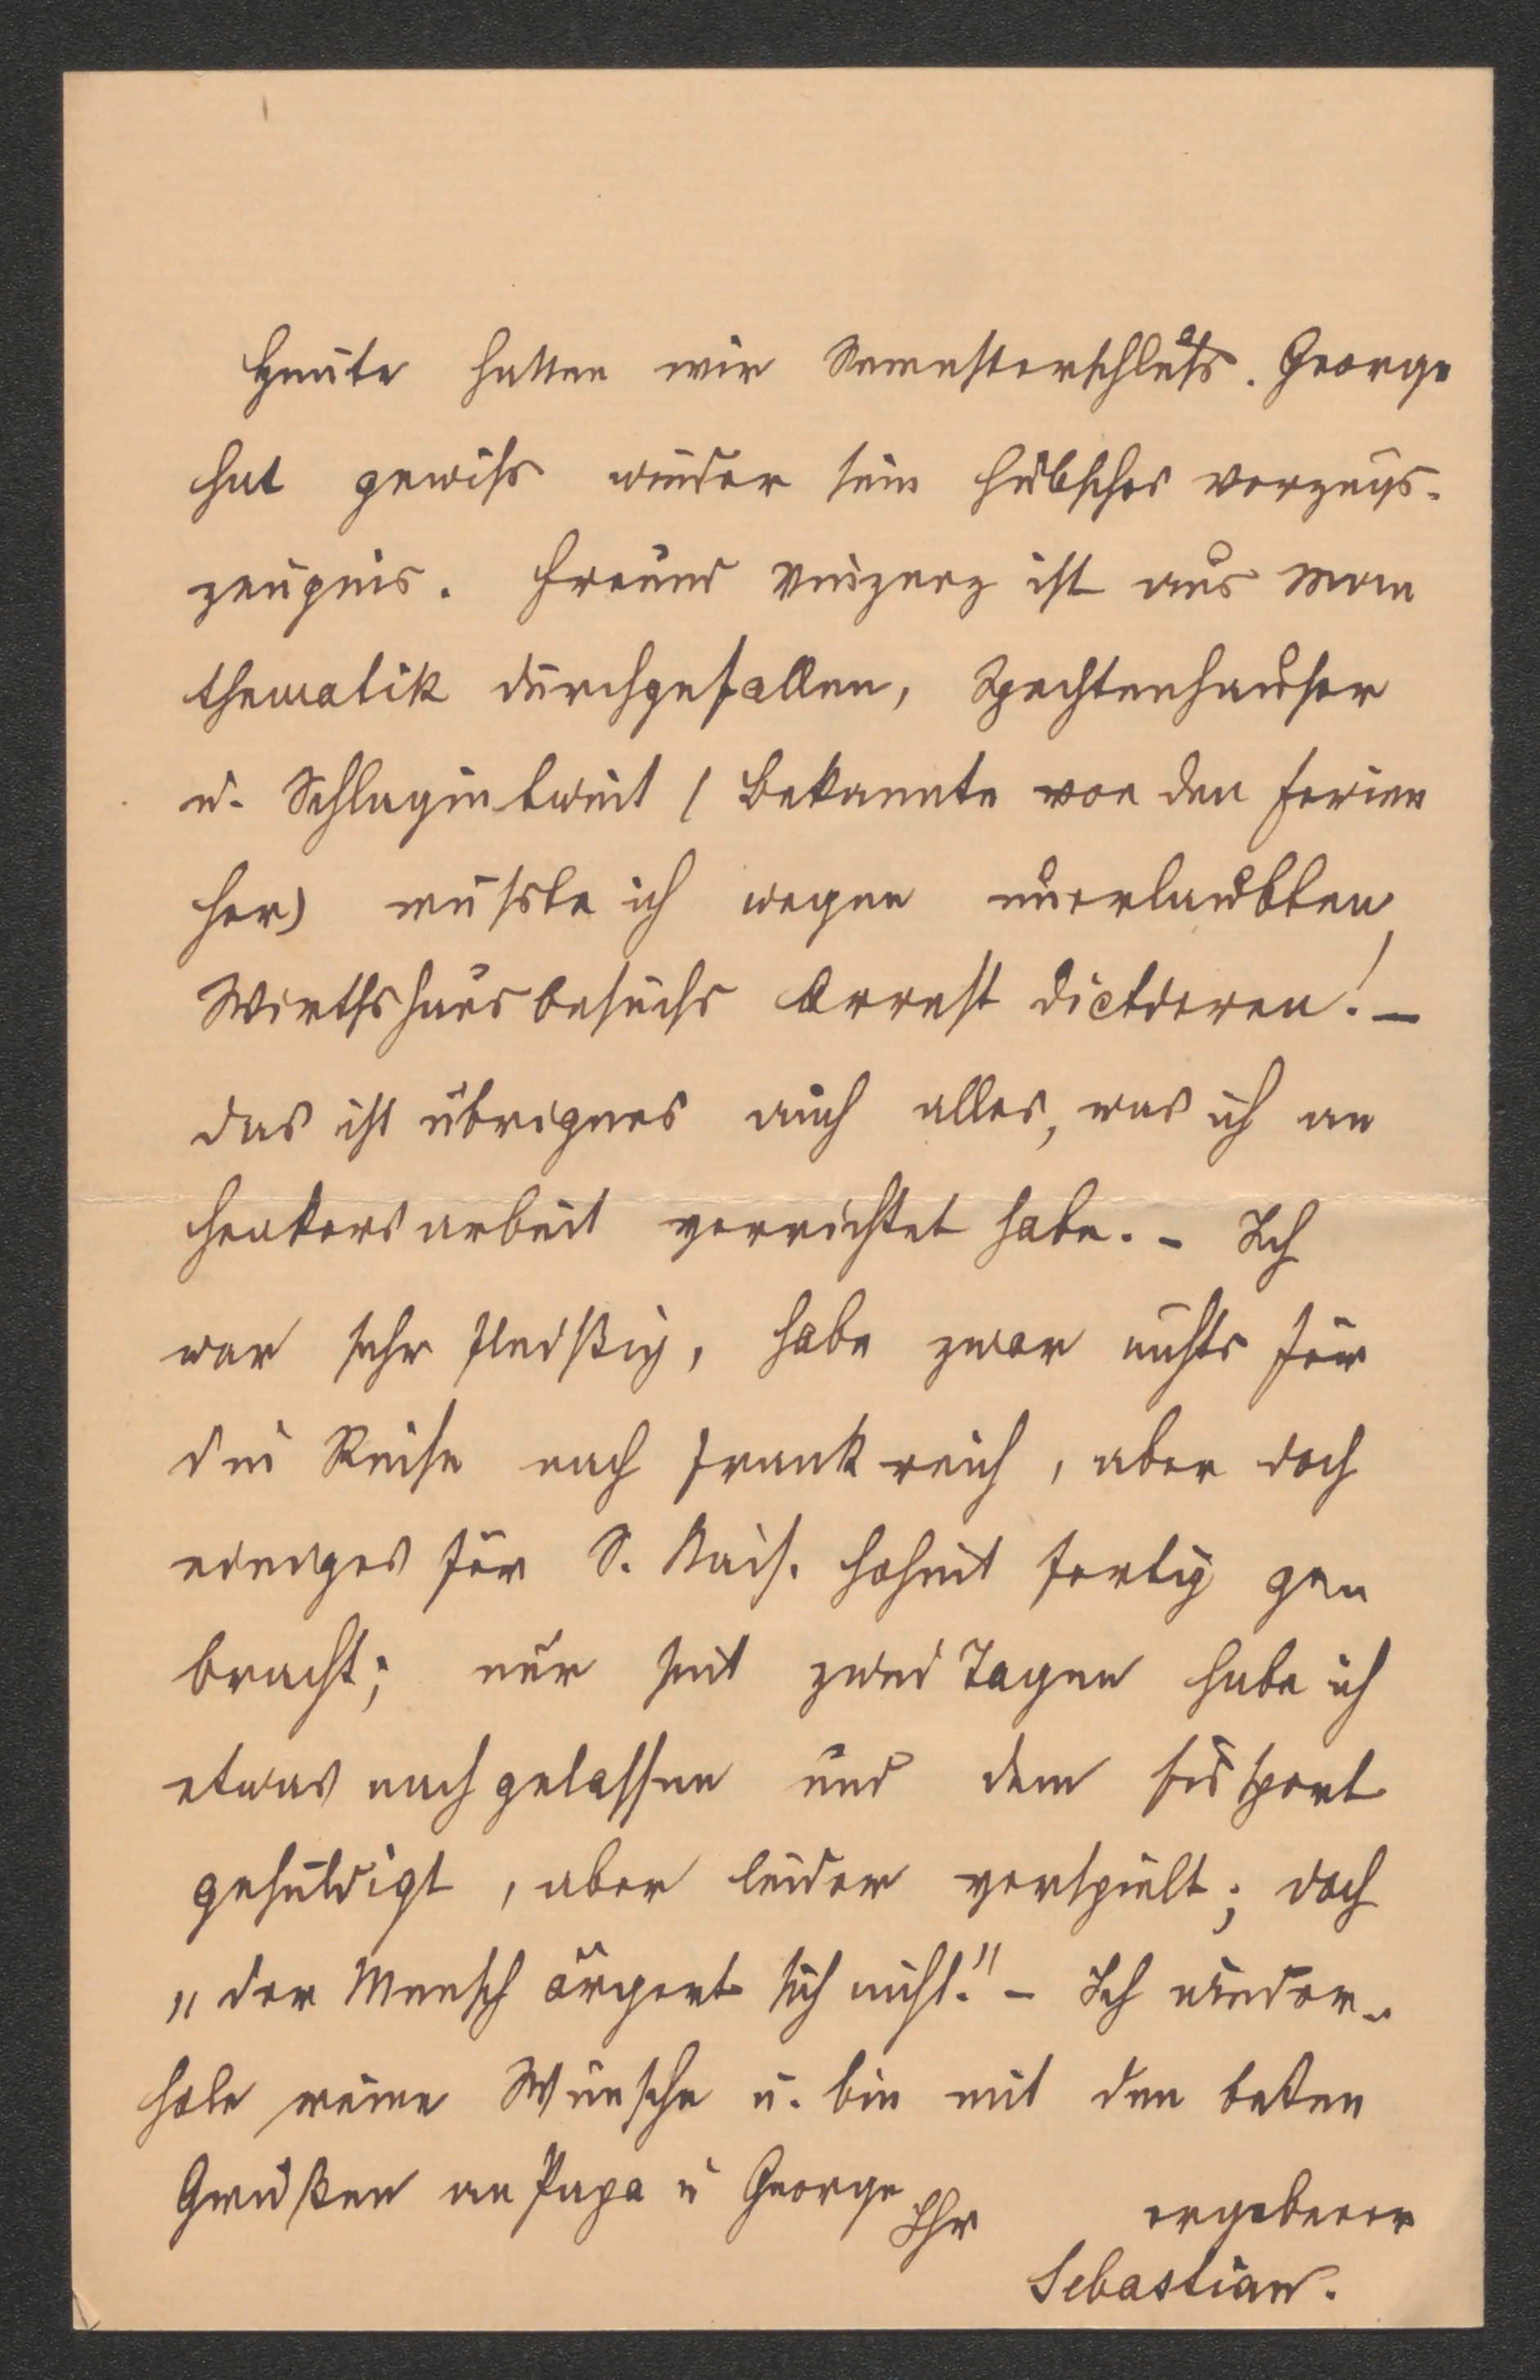 Heute hatten wir Semesterschluß. George
hat gewiß wieder sein hübsches Vorzugs-
zeugnis. Freund Vinzenz ist aus Ma-
thematik durchgefallen, Spechtenhauser
u. Schlagintweit (Bekannte von den Ferien
her) mußte ich wegen unerlaubten
Wirthshausbesuchs Arrest dictieren! –
das ist übrigens auch alles, was ich an
Henkersarbeit verrichtet habe. – Ich
war sehr fleißig, habe zwar nichts für
die Reise nach Frankreich, aber doch
einiges für S. Kais. Hoheit fertig ge-
bracht; nur seit zwei Tagen habe ich
etwas nachgelassen und dem Eissport
gehuldigt, aber leider verspielt; doch
„der Mensch ärgert sich nicht." – Ich wieder-
hole meine Wünsche u. bin mit den besten
Grüßen an Papa u George Ihr ergebener
Sebastian.